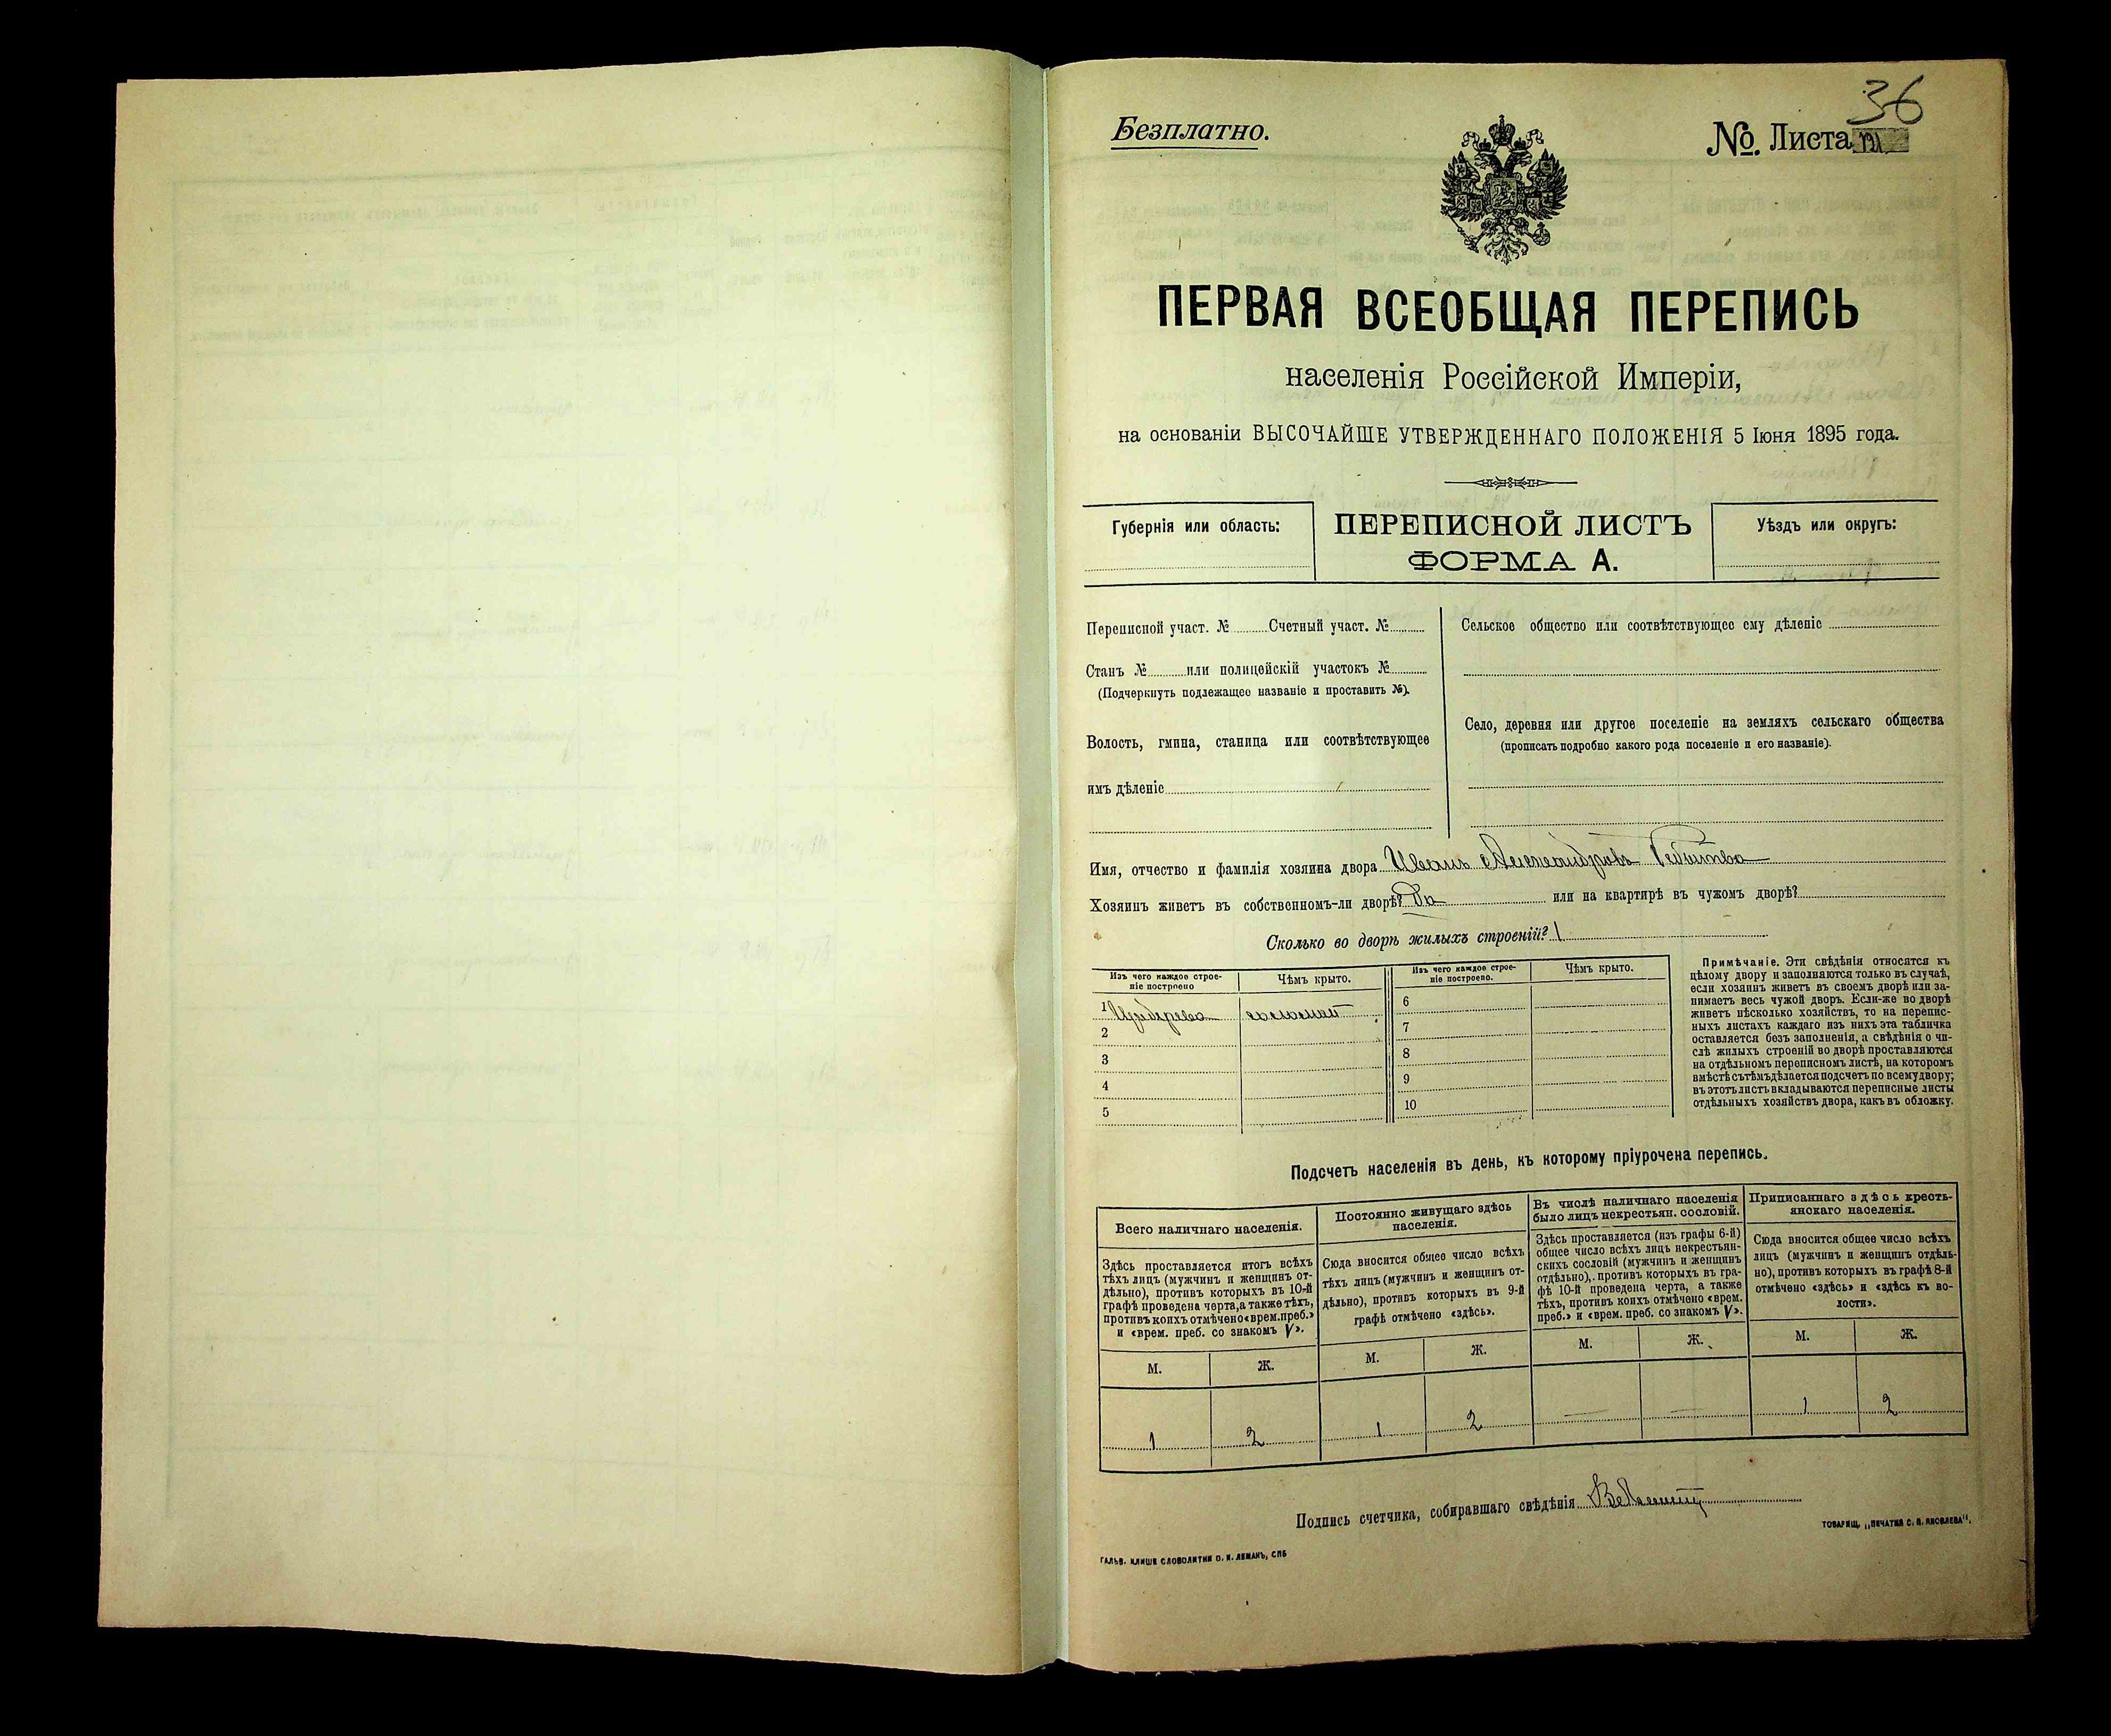 36
Безплатно.
№. Листа
ПЕРВАЯ ВСЕОБЩАЯ ПЕРЕПИСЬ
населенія Россійской Имперіи,
на основаніи ВЫСОЧАЙШЕ УТВЕРЖДЕННАГО ПОЛОЖЕНІЯ 5 Іюня 1895 года.
Губернія или область:
ПЕРЕПИСНОЙ ЛИСТЪ
ФОРМА А.
Уѣздъ или округъ:
Переписной участ. № Счетный участ. №
Станъ № или полицейскій участокъ №
(Подчеркнуть подлежащее названіе и проставить №).
Волость, гмина, станица или соотвѣтствующее
имъ дѣленіе
Сельское общество или соотвѣтствующее ему дѣленіе
Село, деревня или другое поселеніе на земляхъ сельскаго общества
(прописать подробно какого рода поселеніе и его названіе).
Имя, отчество и фамилія хозяина двора Иванъ Александровъ
Хозяинъ живетъ въ собственномъ-ли дворѣ? Да или на квартирѣ въ чужомъ дворѣ?
Сколько во дворѣ жилыхъ строеній? 1
Изъ чего каждое строе-
ніе построено
Чѣмъ крыто.
1 Изъ дерева соломой
2
3
4
5
Изъ чего каждое строе-
ніе построено.
Чѣмъ крыто.
6
7
8
9
10
Примѣчаніе. Эти свѣдѣнія относятся къ
цѣлому двору и заполняются только въ случаѣ,
если хозяинъ живетъ въ своемъ дворѣ или за-
нимаетъ весь чужой дворъ. Если-же во дворѣ
живетъ нѣсколько хозяйствъ, то на перепис-
ныхъ листахъ каждаго изъ нихъ эта табличка
оставляется безъ заполненія, а свѣдѣнія о чи-
слѣ жилыхъ строеній во дворѣ проставляются
на отдѣльномъ переписномъ листѣ, на которомъ
вмѣстѣ съ тѣмъ дѣлается подсчетъ по всему двору;
въ этотъ листъ вкладываются переписные листы
отдѣльныхъ хозяйствъ двора, какъ въ обложку.
Подсчетъ населенія въ день, къ которому пріурочена перепись.
Всего наличнаго населенія.
Здѣсь проставляется итогъ всѣхъ
тѣхъ лицъ (мужчинъ и женщинъ от-
дѣльно), противъ которыхъ въ 10-й
графѣ проведена черта, а также тѣхъ,
противъ коихъ отмѣчено «врем. преб.»
и «врем. преб. со знакомъ V».
М. Ж.
1 2
Постоянно живущаго здѣсь
населенія.
Сюда вносится общее число всѣхъ
тѣхъ лицъ (мужчинъ и женщинъ от-
дѣльно), противъ которыхъ въ 9-й
графѣ отмѣчено «здѣсь».
М. Ж.
1 2
Въ числѣ наличнаго населенія
было лицъ некрестьян. сословій.
Здѣсь проставляется (изъ графы 6-й)
общее число всѣхъ лицъ некрестьян-
скихъ сословій (мужчинъ и женщинъ
отдѣльно), противъ которыхъ въ гра-
фѣ 10-й проведена черта, а также
тѣхъ, противъ коихъ отмѣчено «врем.
преб.» и «врем. преб. со знакомъ V».
М. Ж.
— —
Приписаннаго здѣсь кресть-
янскаго населенія.
Сюда вносится общее число всѣхъ
лицъ (мужчинъ и женщинъ отдѣль-
но), противъ которыхъ въ графѣ 8-й
отмѣчено «здѣсь» и «здѣсь къ во-
лости».
М. Ж.
1 2
Подпись счетчика, собиравшаго свѣдѣнія
ТОВАРИЩ. „ПЕЧАТНЯ С. П. ЯКОВЛЕВА".
ГАЛЬВ. КЛИШЕ СЛОВОЛИТНИ О. И. ЛЕМАНЪ, СПБ